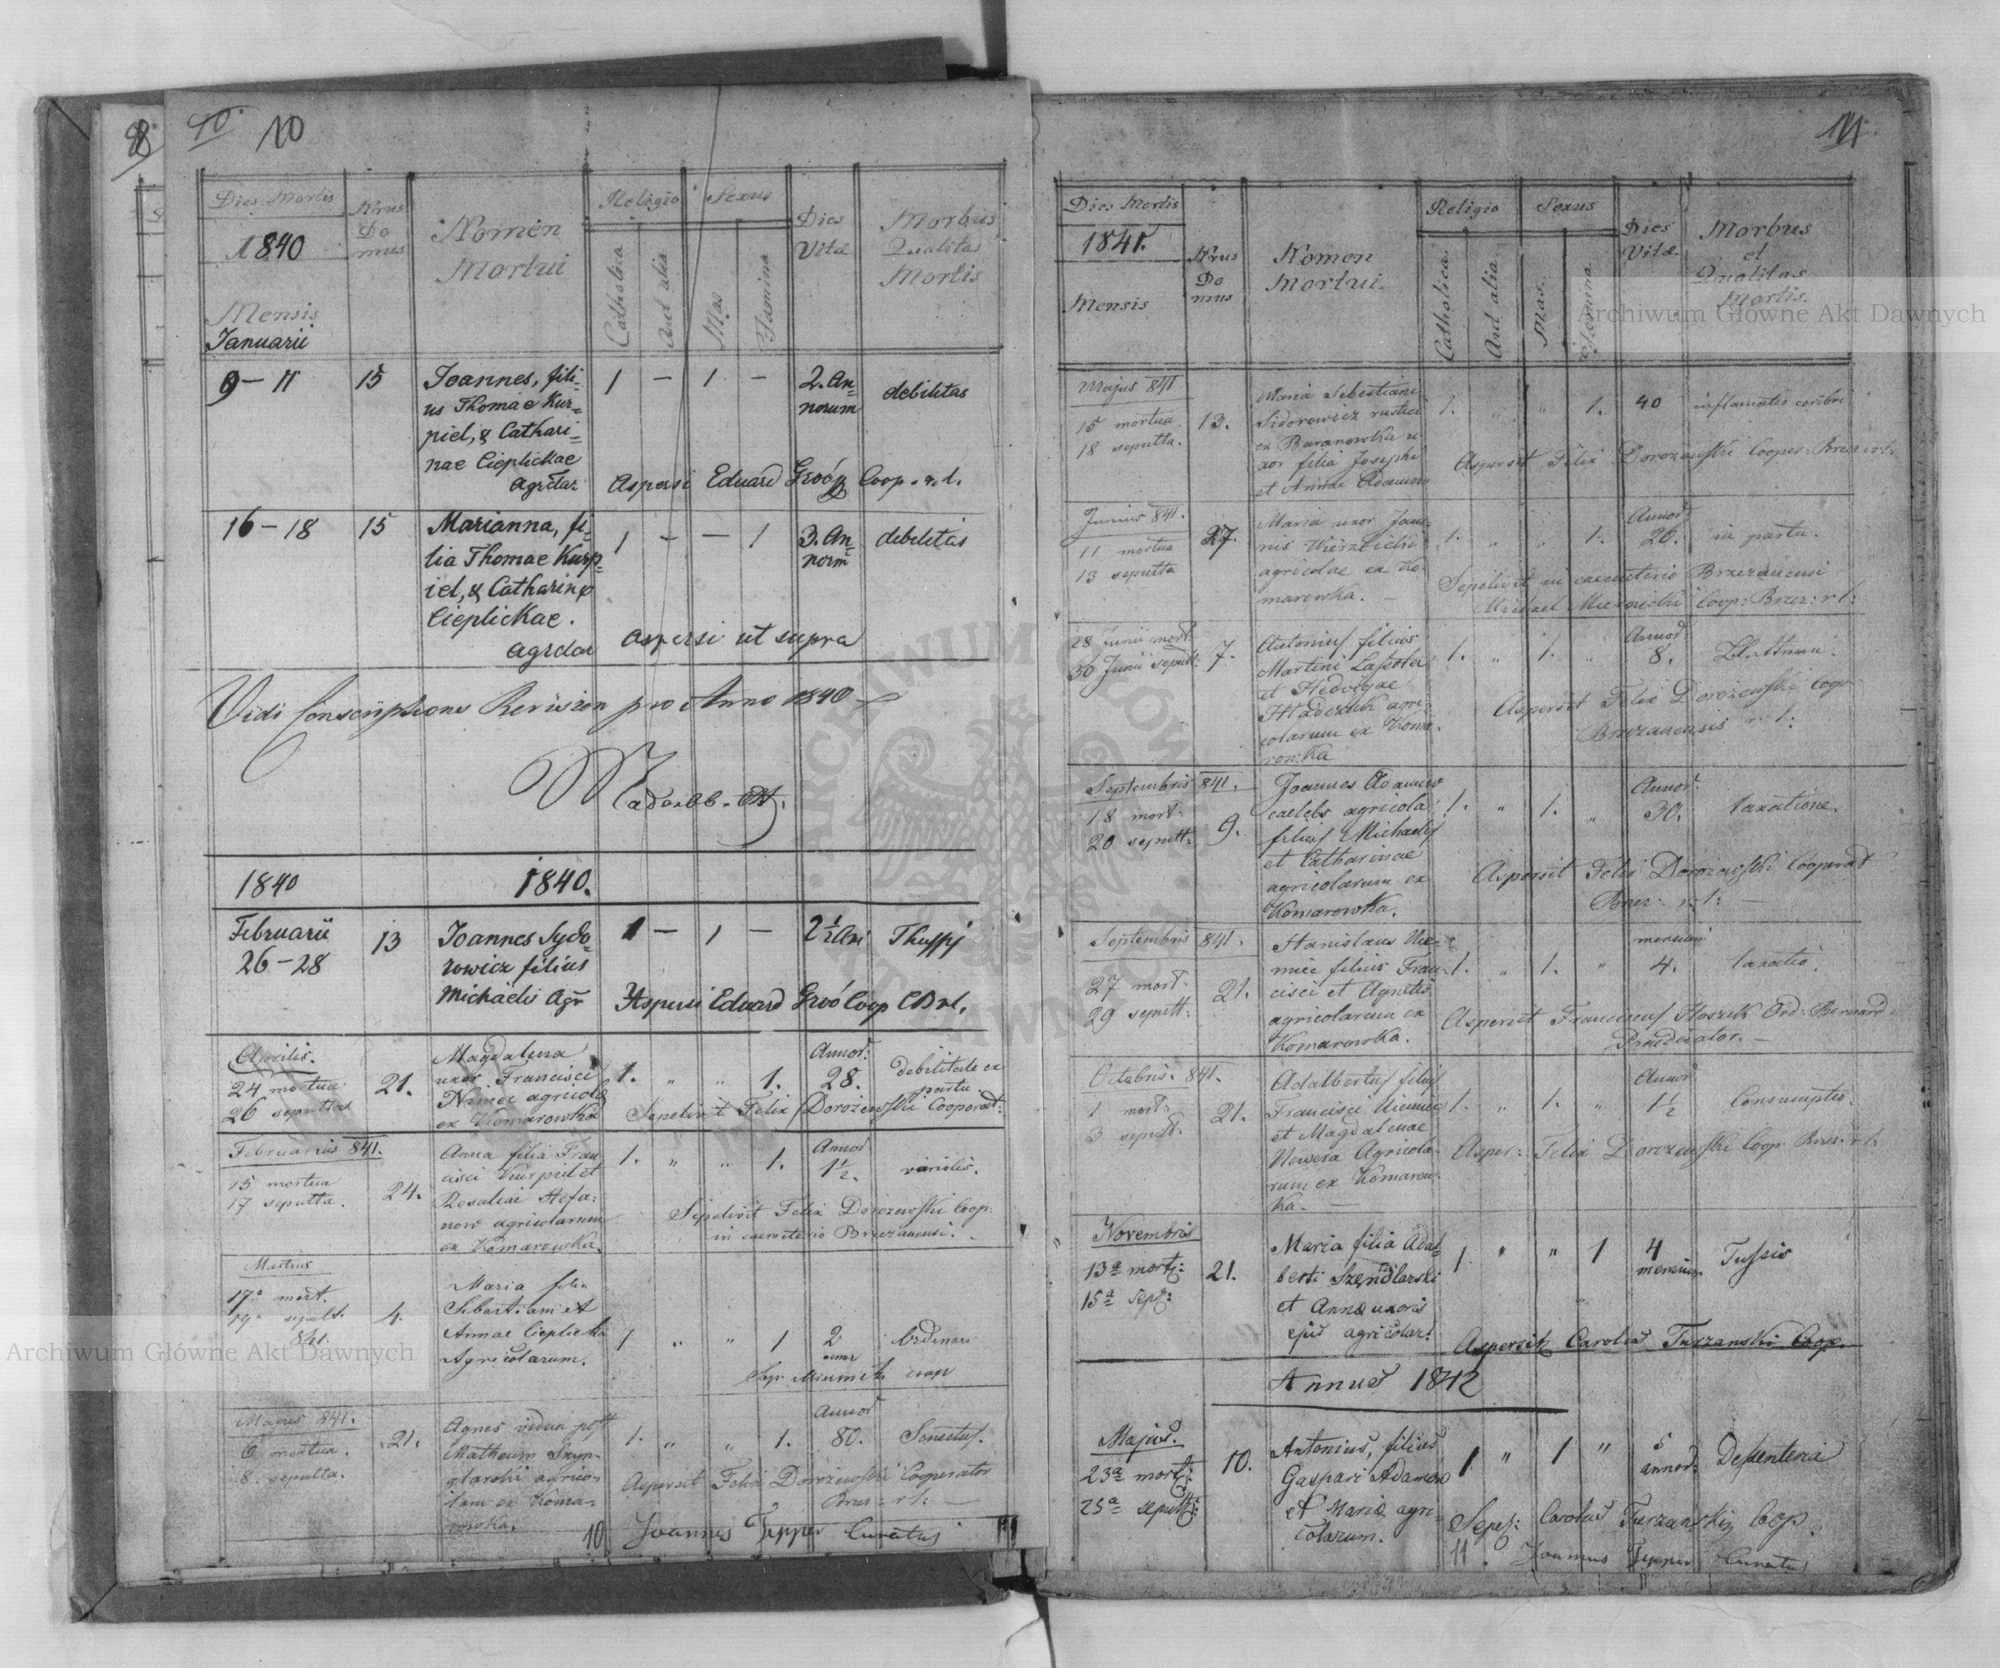 8
10. 10
Dies Mortis
1840
Mensis
Januarii
Nrus Do mus
Nomen Mortui
Religio
Catholica
Aut alia
Sexus
Mas
Foemina
Dies Vitae
Morbus Qualitas Mortis
9 – 11 15 Joannes, fili= 1 – 1 – 2. An= debilitas
us Thomae Kur= norum
piel, & Cathari=
nae Cieplickae
Agricolar Aspersi Eduard Groóz Coop. r. l.
16 – 18 15 Marianna, fi= 1 – – 1 3. An= debilitas
lia Thomae Kurp= norm
iel, & Catharinę
Cieplickae.
agrdar aspersi ut supra
Vidi Conscriptions Revision pro Anno 1840
1840 1840.
Februarii 13 Joannes Sydo= 1 – 1 – 2½ An
26 – 28 rowicz filius
Michaelis Agr Aspersi Eduard Groó Coop
Aprilis. Magdalena Annor:
24 mortua 21. uxor Francisci 1. " " 1. 28. debilitate ex
26 sepulta Nimec agricola partu.
ex Komarowka Sepelivit Felix Dorożewski Cooperat:
Februarius 841. Anna filia Fran= 1. " " 1. Annor
15 mortua 24. cisci Kurpiel et 1½. variolis.
17 sepulta. Rosaliae Stefa=
now agricolarum Sepelivit Felix Dorożewski Coop:
ex Komarowka. in caemeterio Brzezanensi.
Martius
17a mort. Maria filia
19a sepult. 4. Sebastiani et
841. Annae Cieplicka 1 " " 1 2 Ordinari
Agricolarum. annor
coop
Majus 841. Agnes vidua post Annor
6 mortua. 21. Matheum Szyn= 1. " " 1. 80. Senectus.
8. sepulta. dlarski agrico=
lam ex Koma= Aspersit Felix Dorożewski Cooperator
rowka. Brzez: r: l:
10 Joannes Tepper Curatus
11.
Dies Mortis
1841.
Mensis
Nrus Do mus
Nomen Mortui
Religio
Catholica.
Aut alia.
Sexus
Mas.
Foemina.
Dies Vitae.
Morbus et Qualitas Mortis.
Majus 841 Maria Sebastiani
15 mortua 13. Sidorowicz rustici 1. " " 1. 40 inflamatio cerebri
18 sepulta. ex Baranowka u=
xor filia Josephi Aspersit Felix Dorożewski Cooper: Brzez: r: l:
et Annae Adamow
Junius 841. Maria uxor Joan= Annor
11 mortua 27. nis Wierzbicki 1. " " 1. 20. in partu.
13 sepulta agricolae ex Ko= Sepelivit in caemeterio Brzezanensi
marowka. Michael Miernicki Coop: Brzez: r: l:
28 Junii mort. Antonius filius Annor
30 Junii sepult: 7. Martini Laszota 1. " 1. " 8.
et Hedvigae
agri= Aspersit Felix Dorożewski Coop:
colarum ex Koma= Brzezanensis r: l:
rowka
Septembris 841. Joannes Adamow Annor
18 mort: 9. caelebs agricola 1. " 1. " 30. laxatione.
20 sepult: filius Michaelis
et Catharinae
agricolarum ex Aspersit Felix Dorożewski Cooperat
Komarowka. Brzez: r: l:
Septembris 841. Stanislaus Nie= mensium
27 mort. 21. miec filius Fran= 1. " 1. " 4. laxatio.
29 sepult: cisci et Agnetis
agricolarum ex Aspersit Franciscus Ord: Bernard
Komarowka. Praedicator.
Octobris. 841. Adalbertus filius Annor
1 mort: 21. Francisci Niemiec 1. " 1. " 1½ Consumptio.
3 sepult. et Magdalenae
Agricola= Asper: Felix Dorożewski Coop: Brzez: r: l:
rum ex Komarow=
ka.
Novembris Maria filia Adal= 1 " " 1 4 Tussis
13a mort: 21. berti Szęndlarski mensium
15a sep: et Annae uxoris
ejus agricolar: Aspersit Carolus Turzanski Coop.
Annus 1842
Majus. Antonius, filius 1 " 1 " 5
23a mort: 10. Gaspari Adamow annor:
25a sepult: et Mariae agri=
colarum. Sepel: Carolus Turzanski Coop.
11. Joannes Tepper Curatus
Archiwum Główne Akt Dawnych
Archiwum Główne Akt Dawnych
ARCHIWUM GŁÓWNE AKT DAWNYCH